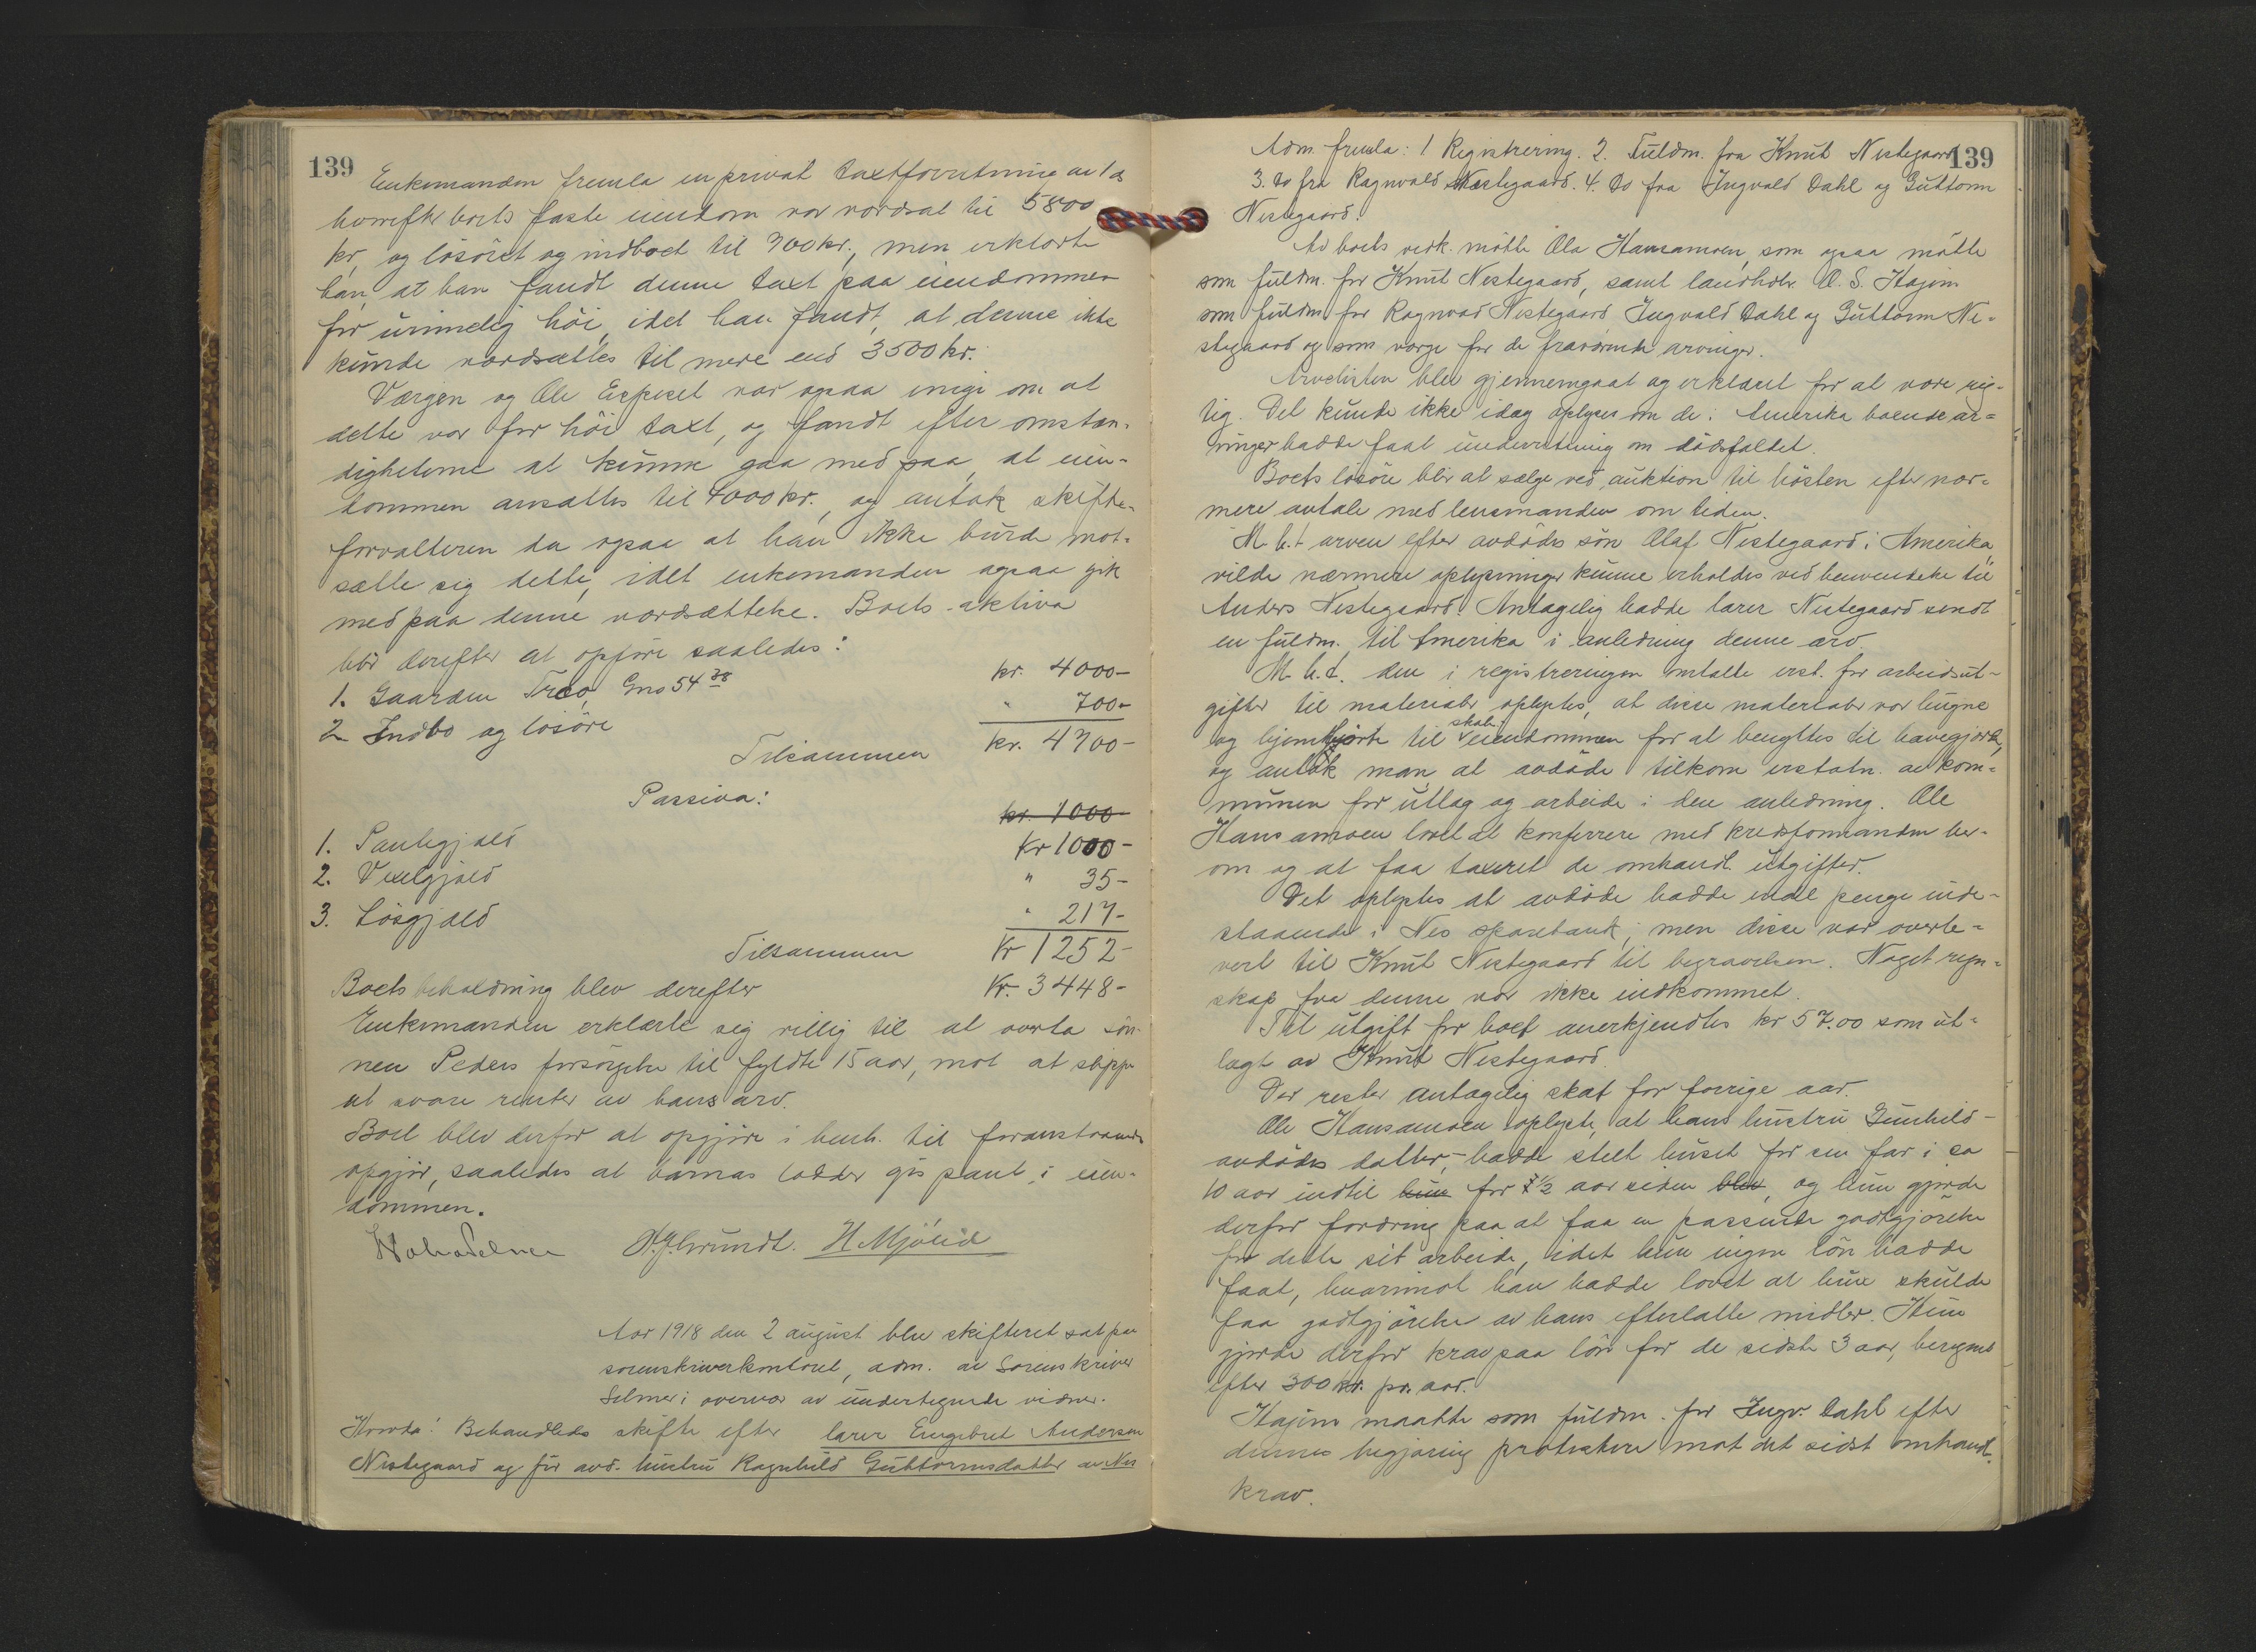 139
Enkemanden fremla en privat taxtforretning av 1 ds
hvorefter boets faste eiendom var værdsat til 5800
kr, og løsøret og indboet til 700 kr., men erklærte
han, at han fandt denne taxt paa eiendommen
for urimelig høi, idet han fandt, at denne ikke
kunde værdsættes til mere end 3500 kr.
Værgen og Ole Espeset var ogsaa enige om at
dette var for høi taxt, og fandt efter omstæn-
dighetene at kunne gaa med paa, at eien-
dommen ansattes til 4000 kr., og antok skifte-
forvalteren da ogsaa at han ikke burde mot-
sætte sig dette, idet enkemanden ogsaa gik
med paa denne værdsættelse. Boets aktiva
blir derefter at opføre saaledes:
1. Gaarden Træo, Gno 54 38 kr. 4000-
2. Indbo og løsøre " 700-
Tilsammen kr. 4700-
Passiva:
kr. 1000-
1. Pantegjæld Kr 1000-
2. Vexelgjæld " 35-
3. Løsgjæld " 217-
Tilsammen Kr 1252-
Boets beholdning blev derefter Kr. 3448-
Enkemanden erklærte sig villig til at overta søn-
nen Peders forsørgelse til fyldte 15 aar, mot at slippe
at svare renter av hans arv.
Boet blev derfor at opgjøre i henh. til foranstaaende
opgjør, saaledes at barnas lodder gis pant i eien-
dommen.
H. J. Grundt. H Mjølid
Aar 1918 den 2 august blev skifteret sat paa
sorenskriverkontoret, adm. av Sorenskriver
Selmer i overvær av undertegnede vidner.
Hvorda: Behandledes skifte efter lærer Engebret Andersen
Nestegaard og før avd. hustru Ragnhild Guttormsdatter av Nes
139
Adm. fremla: 1 Registrering. 2. Fuldm. fra Knut Nestegaard
3. do fra Ragnvald Nestegaard. 4. do fra Ingvald Dahl og Guttorm
Nestegaard.
Av boets vedk. møtte Ola Hansamoen, som ogsaa møtte
som fuldm. for Knut Nestegaard, samt landhdlr. O. S. Hagen
som fuldm. for Ragnvad Nestegaard Ingvald Dahl og Guttorm Ne-
stegaard og som værge for de fraværende arvinger.
Arvelisten blev gjennemgaat og erklæret for at være rig-
tig. Det kunde ikke idag oplyses om de i Amerika boende ar-
vinger hadde faat underretning om dødsfaldet.
Boets løsøre blir at sælge ved auktion til høsten efter nær-
mere avtale med lensmanden om tiden.
M. h. t arven efter avdødes søn Olaf Nestegaard i Amerika,
vilde nærmere oplysninger kunne erholdes ved henvendelse til
Anders Nestegaard. Antagelig hadde lærer Nestegaard sendt
en fuldm. til Amerika i anledning denne arv.
M. h. t. den i registreringen omtalte erst. for arbeidsut-
gifter til materialer oplystes, at disse materialer var hugne
og hjemkjørte til skole eiendommen for at benyttes til havegjærde,
og antok man at avdøde tilkom erstatn. av kom-
munen for utlæg og arbeide i den anledning. Ole
Hansamoen lovet at konferrere med kredsformanden her-
om og at faa taxeret de omhandl. utgifter.
Det oplystes at avdøde hadde endel penge inde-
staaende i Nes sparebank, men disse var overle-
vert til Knut Nestegaard til begravelsen. Noget regn-
skap fra denne var ikke indkommet.
Til utgift for boet anerkjendtes kr 57.00 som ut-
lagt av Knut Nestegaard.
Der rester antagelig skat for forrige aar.
Ole Hansamoen oplyste, at hans hustru Gunhild -
avdødes datter, - hadde stelt huset for sin far i ca
10 aar indtil hun for 1½ aar siden blev, og hun gjorde
derfor fordring paa at faa en passende godtgjørelse
for dette sit arbeide, idet hun ingen løn hadde
faat, hvorimot han hadde lovet at hun skulde
faa godtgjørelse av hans efterlatte midler. Hun
gjorde derfor krav paa løn for de sidste 3 aar, beregnet
efter 300 kr. pr. aar.
Hagen maatte som fuldm. for Ingv. Dahl efter
dennes begjæring protestere mot det sidst omhandl.
krav.